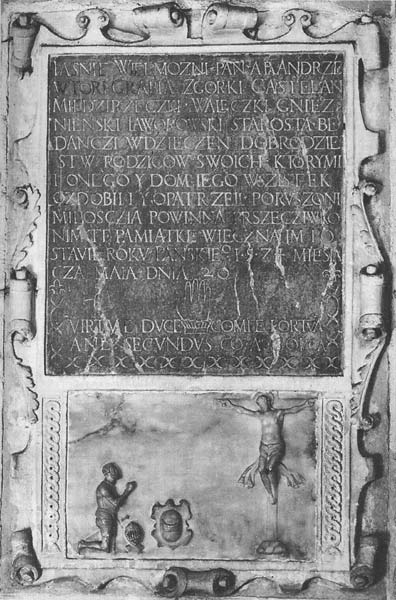 IASNIE WIELMOZNI PAN A P ANDRZE
Y TORI GRABIA ZGORKI CASTELAN
MIEDZIRZECZKI WALECZKI GNIEZ
NIENSKI IAWOROWSKI STAROSTA BE
DANCZI WDZIECZEN DOBRODZIE
ISTW RODZICOW SWOICH KTORYMI
IONEGO Y DOM IEGO WSZELEK
OZDOBILI Y OPATRZELI PORUSZONI
MILOSCZIA POWINNA PRSZECZIWKO
NIM TE PAMIATKE WIECZNA IM PO
STAWIE ROKU PANSKIE 1574 MIESIA
CZA MAIA DNIA 20
VIRTVTE DVCE COMITE FORTV